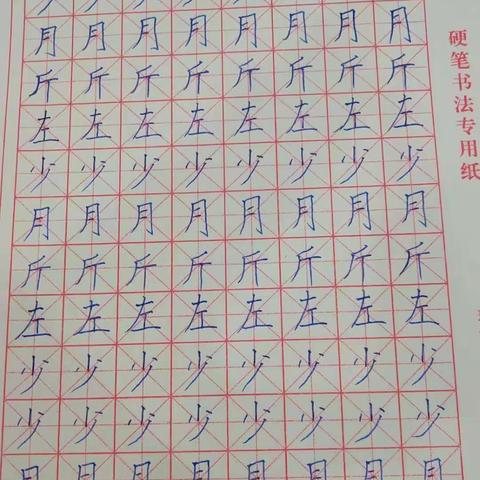 月月月月月月月月
斤斤斤斤斤斤斤斤
左左左左左左左左
少少少少少少少少
月月月月月月月月
斤斤斤斤斤斤斤斤
左左左左左左左左
少少少少少少少少
少少少少少少少少
月月月月月月月月
硬笔书法专用纸